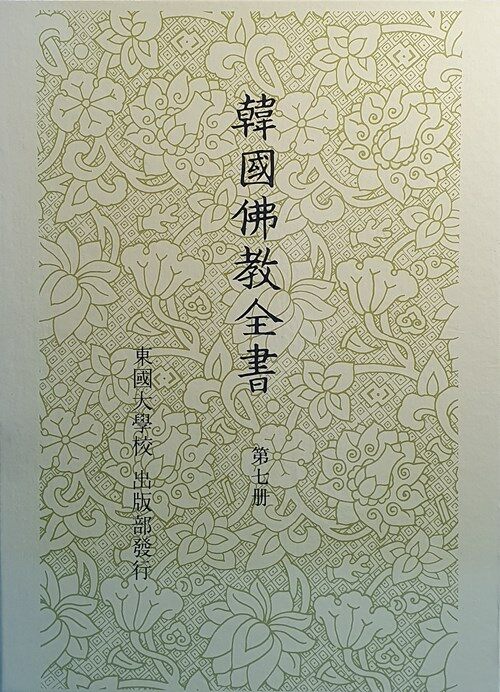 韓國佛教全書
第七册
東國大學校 出版部發行